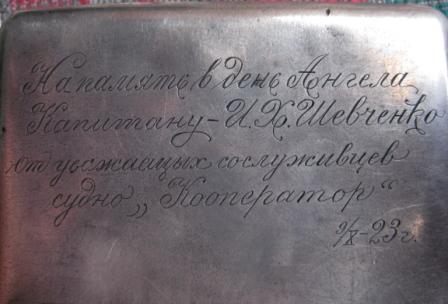 На память в день Ангела
Капитану – И.Х. Шевченко
от уезжаещих сослуживцев
судно „Кооператор“
9/X – 23 г.